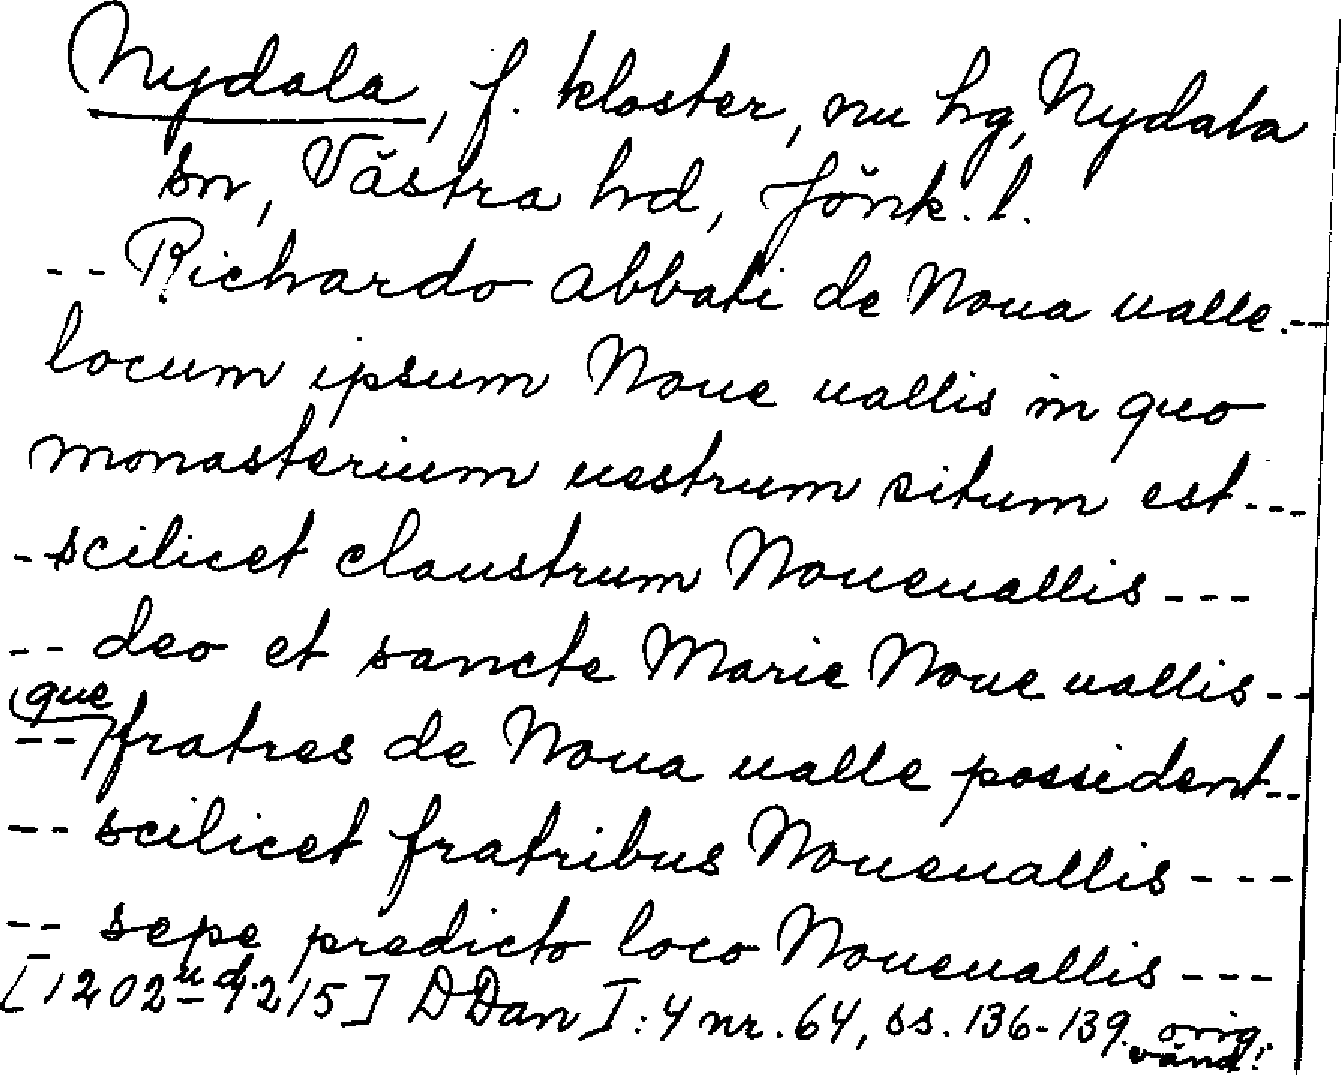 Nydala, f. kloster, nu hg, Nydala
sn, Västra hd, Jönk. l.
-- Richardo abbati de Noua ualle.--
locum ipsum Noue uallis in quo
monasterium uestrum situm est---
- scilicet claustrum Noueuallis---
-- deo et sancte Marie Noue uallis--
que
-- fratres de Noua ualle possident--
-- scilicet fratribus Noueuallis---
-- sepe predicto loco Noueuallis---
[1202-1215] DDan I:4 nr. 64, ss. 136-139. orig.
vänd!